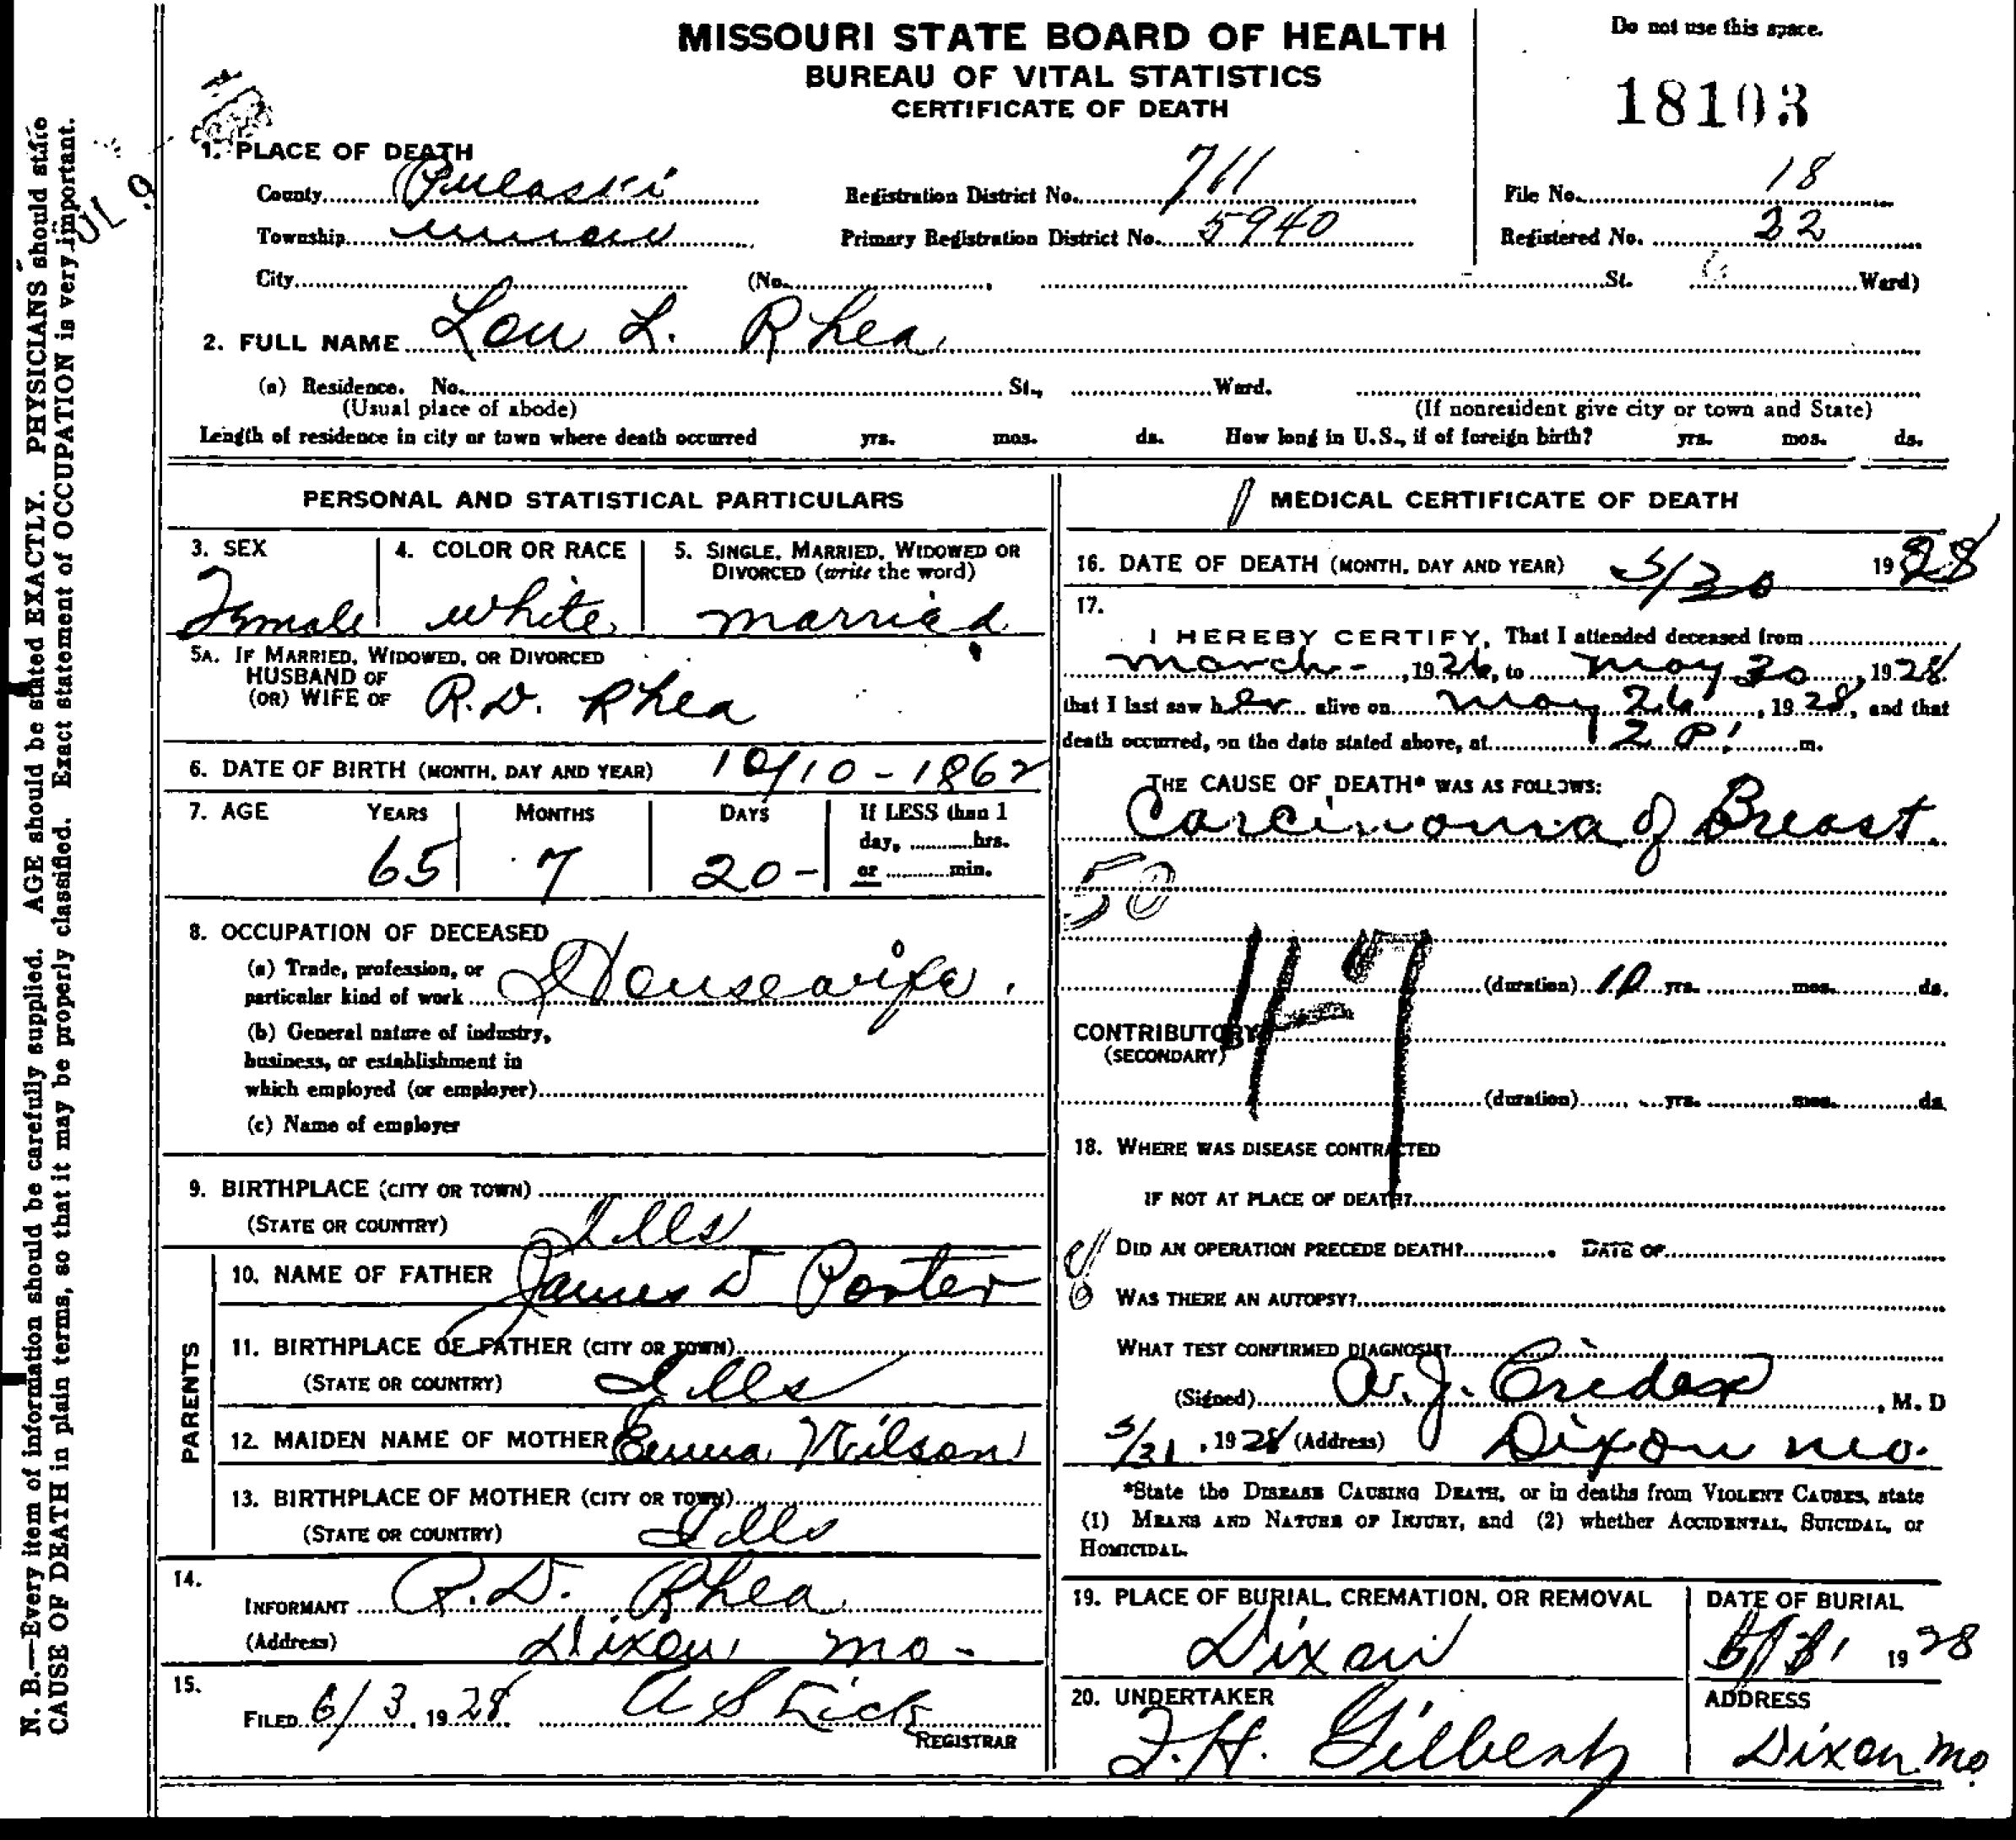 MISSOURI STATE BOARD OF HEALTH
BUREAU OF VITAL STATISTICS
CERTIFICATE OF DEATH
Do not use this space.
18103
JUL 9
1. PLACE OF DEATH
County Pulaski Registration District No. 711 File No. 18
Township Primary Registration District No. 5940 Registered No. 22
City (No. , St. Ward)
2. FULL NAME Lou L. Rhea
(a) Residence. No. St., Ward.
(Usual place of abode) (If nonresident give city or town and State)
Length of residence in city or town where death occurred yrs. mos. ds. How long in U.S., if of foreign birth? yrs. mos. ds.
PERSONAL AND STATISTICAL PARTICULARS
3. SEX 4. COLOR OR RACE 5. SINGLE, MARRIED, WIDOWED OR
DIVORCED (write the word)
Female white married
5A. IF MARRIED, WIDOWED, OR DIVORCED
HUSBAND OF
(OR) WIFE OF R.D. Rhea
6. DATE OF BIRTH (MONTH, DAY AND YEAR) 10/10 - 1862
7. AGE YEARS MONTHS DAYS If LESS than 1
day, hrs.
65 7 20 - or min.
8. OCCUPATION OF DECEASED
(a) Trade, profession, or
particular kind of work Housewife
(b) General nature of industry,
business, or establishment in
which employed (or employer)
(c) Name of employer
9. BIRTHPLACE (CITY OR TOWN)
(STATE OR COUNTRY) Ills
PARENTS
10. NAME OF FATHER James D Porter
11. BIRTHPLACE OF FATHER (CITY OR TOWN)
(STATE OR COUNTRY) Ills
12. MAIDEN NAME OF MOTHER Emma Wilson
13. BIRTHPLACE OF MOTHER (CITY OR TOWN)
(STATE OR COUNTRY) Ills
14.
INFORMANT R.D. Rhea
(Address) Dixon, Mo -
15.
FILED 6/3, 1928 A S
REGISTRAR
MEDICAL CERTIFICATE OF DEATH
16. DATE OF DEATH (MONTH, DAY AND YEAR) 5/30 1928
17.
I HEREBY CERTIFY, That I attended deceased from
March - , 1926, to May 30, 1928
that I last saw her alive on May 26, 1928, and that
death occurred, on the date stated above, at 12 P. m.
THE CAUSE OF DEATH* WAS AS FOLLOWS:
Carcinoma of Breast.
50
47
(duration) 10 yrs. mos. ds.
CONTRIBUTORY
(SECONDARY)
(duration) yrs. mos. ds.
18. WHERE WAS DISEASE CONTRACTED
IF NOT AT PLACE OF DEATH?
DID AN OPERATION PRECEDE DEATH? DATE OF
WAS THERE AN AUTOPSY?
WHAT TEST CONFIRMED DIAGNOSIS?
(Signed) , M. D
5/31, 1928 (Address) Dixon Mo.
*State the DISEASE CAUSING DEATH, or in deaths from VIOLENT CAUSES, state
(1) MEANS AND NATURE OF INJURY, and (2) whether ACCIDENTAL, SUICIDAL, or
HOMICIDAL.
19. PLACE OF BURIAL, CREMATION, OR REMOVAL DATE OF BURIAL
Dixon 5/31 1928
20. UNDERTAKER ADDRESS
F.H. Dixon Mo
N. B.—Every item of information should be carefully supplied. AGE should be stated EXACTLY. PHYSICIANS should state
CAUSE OF DEATH in plain terms, so that it may be properly classified. Exact statement of OCCUPATION is very important.